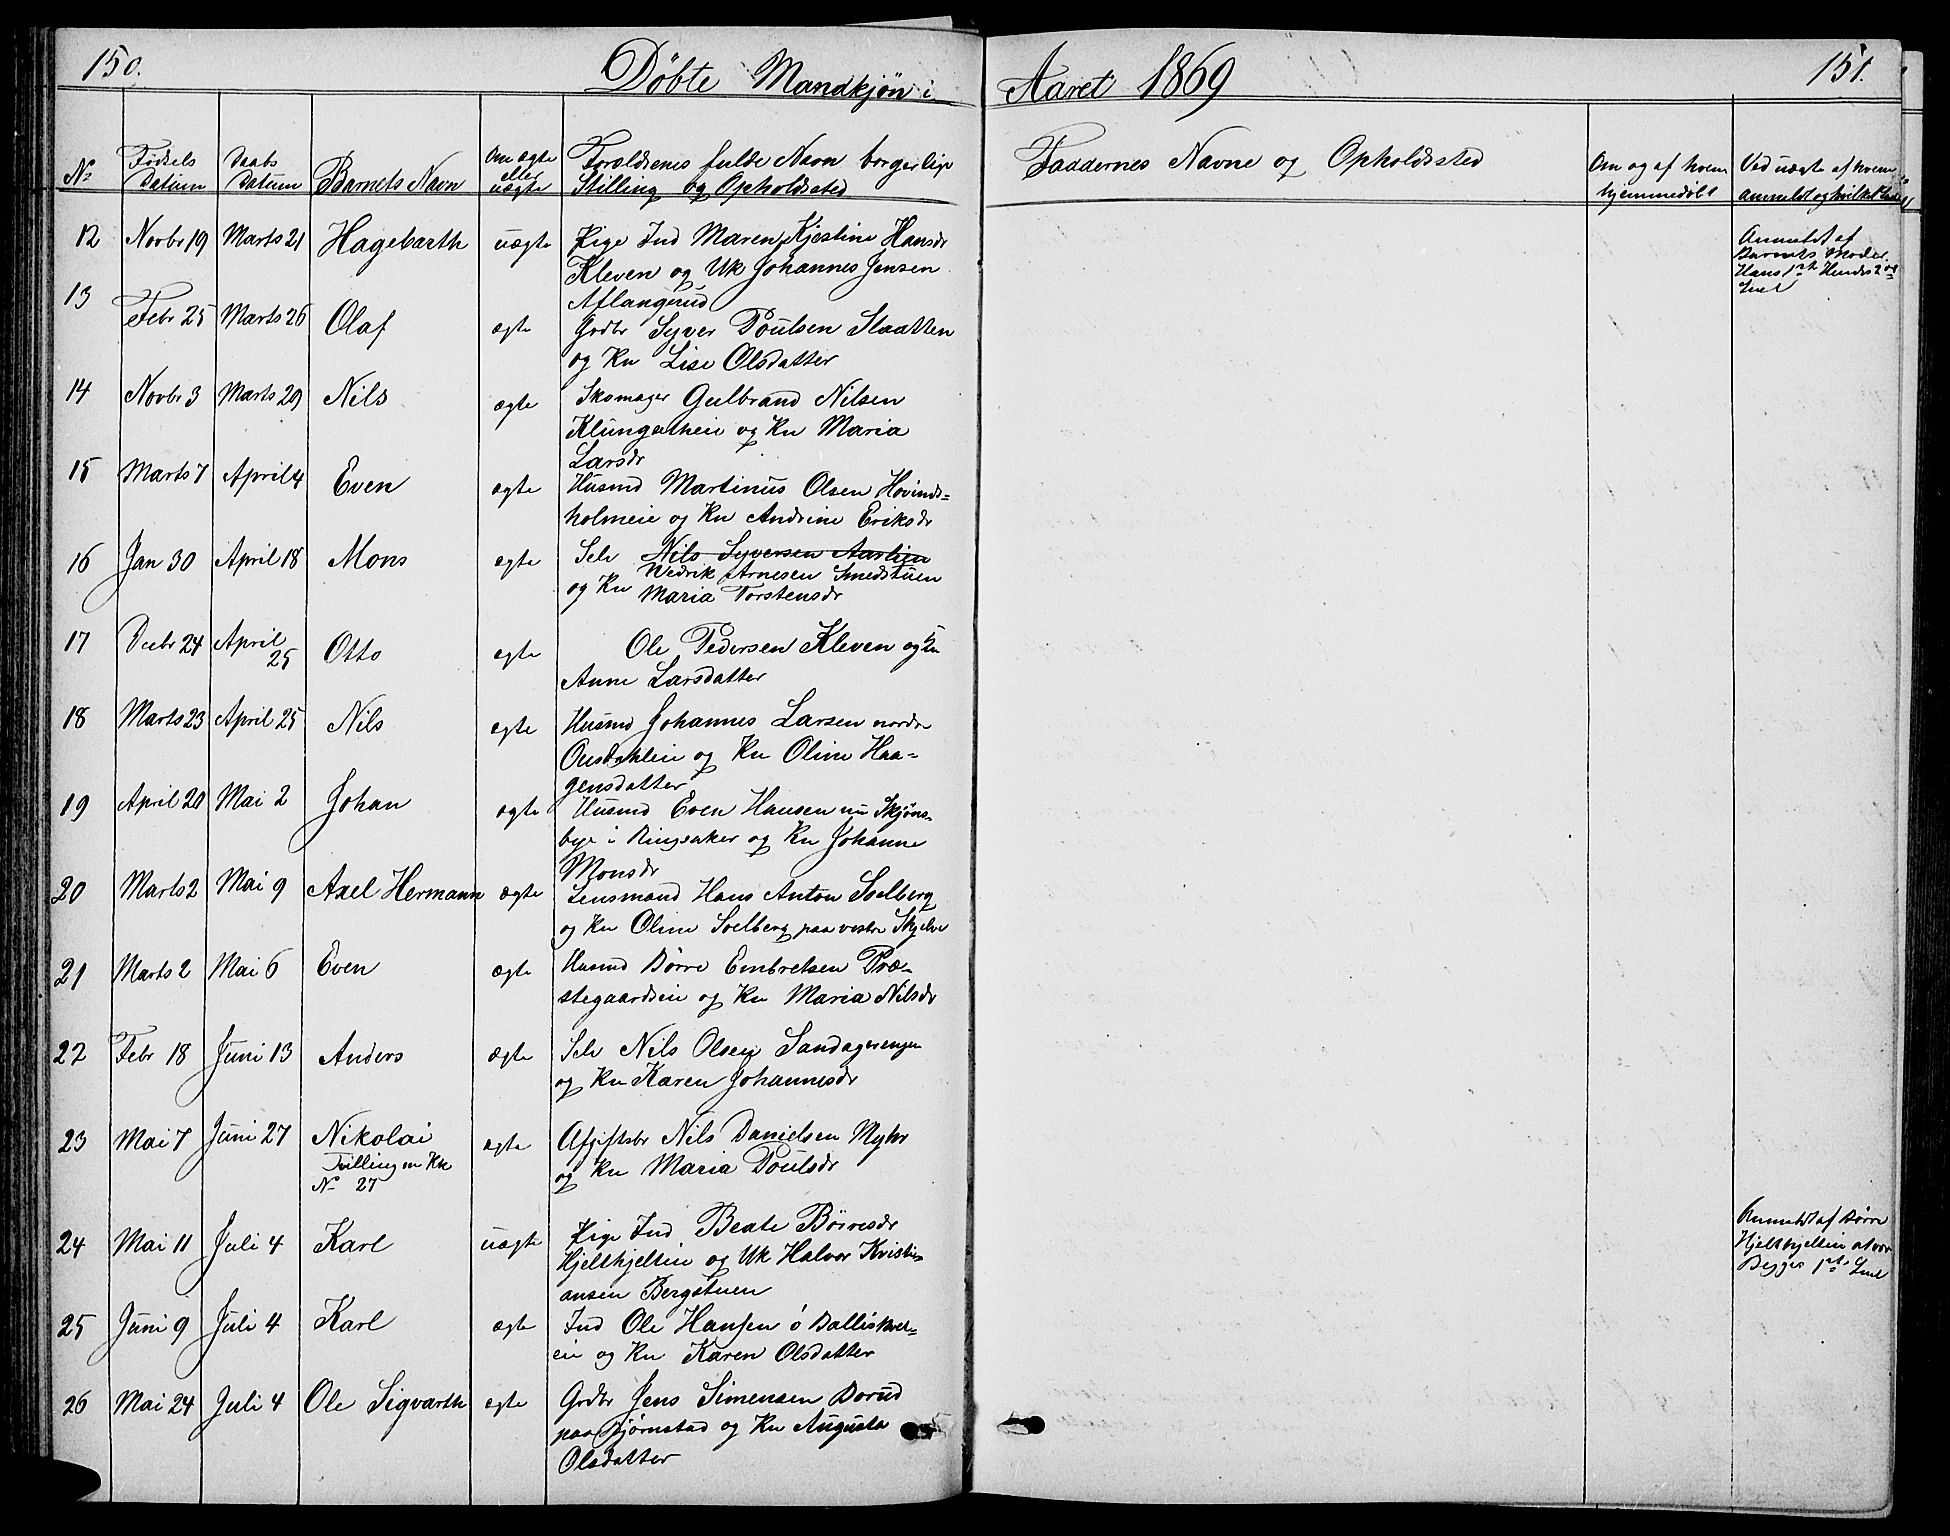 150.
Døbte Mandkjøn i
No
Fødsels Datum
Daabs Datum
Barnets Navn
Om ægte eller uægte
Forældrenes fulde Navn borgerlige
Stilling og Opholdsted
12 Novbr 19 Marts 21 Hagebarth uægte Pige Ind Maren Kjestine Hansdr
Kleven og Uk Johannes Jensen
Aflangrud
13 Febr 25 Marts 26 Olaf ægte Grdbr Syver Poulsen Slaatten
og Kn Lise Olsdatter
14 Novbr 3 Marts 29 Nils ægte Skomager Gulbrand Nilsen
og Kn Maria
Larsdr
15 Marts 7 April 4 Even ægte Husmd Martinus Olsen Hovinds-
holmeie og Kn Andrine Eriksdr
16 Jan 30 April 18 Mons ægte Selv Nils Syversen Aaslien
Arnesen Smedstuen
og Kn Maria Torstensdr
17 Decbr 24 April 25 Otto ægte Ole Pedersen Kleven og Kn
Anne Larsdatter
18 Marts 23 April 25 Nils ægte Husmd Johannes Larsen nordre
og Kn Oline Haa-
gensdatter
19 April 20 Mai 2 Johan ægte Husmd Even Hansen nu Skjøns-
bye i Ringsaker og Kn Johanne
Monsdr
20 Marts 2 Mai 9 Axel Hermann ægte Lensmand Hans Anton Soelberg
og Kn Oline Soelberg paa vestre Skjelve
21 Marts 2 Mai 6 Even ægte Husmd Børre Embretsen Præ-
stegaardseie og Kn Maria Nilsdr
22 Febr 18 Juni 13 Anders ægte Selv Nils Olsen Sandagerengen
og Kn Karen Johannesdr
23 Mai 7 Juni 27 Nikolai ægte Afgiftsbr Nils Danielsen Myhr
Tvilling m Kk
No 27
og Kn Maria Poulsdr
24 Mai 11 Juli 4 Karl uægte Pige Ind Beate Børresdr
Hjelthjelteie og Uk Halvor Kristi-
ansen Bergstuen
25 Juni 9 Juli 4 Karl ægte Ind Ole Hansen ø Balliskver-
eie og Kn Karen Olsdatter
26 Mai 24 Juli 4 Ole Sigvarth ægte Grdbr Jens Simensen Dorud
paa Bjørnstad og Kn Augusta
Olsdatter
Aaret 1869
151.
Faddernes Navne og Opholdssted
Om og af hvem
hjemmedøbt
Ved uægte af hvem
anmeldt og hvilket
Anmeldt af
Barnets Moder.
Hans 1st Hendes 2det
Leiermaal
Anmeldt af Børre
Hjelthjelteie at være
Begges 1st